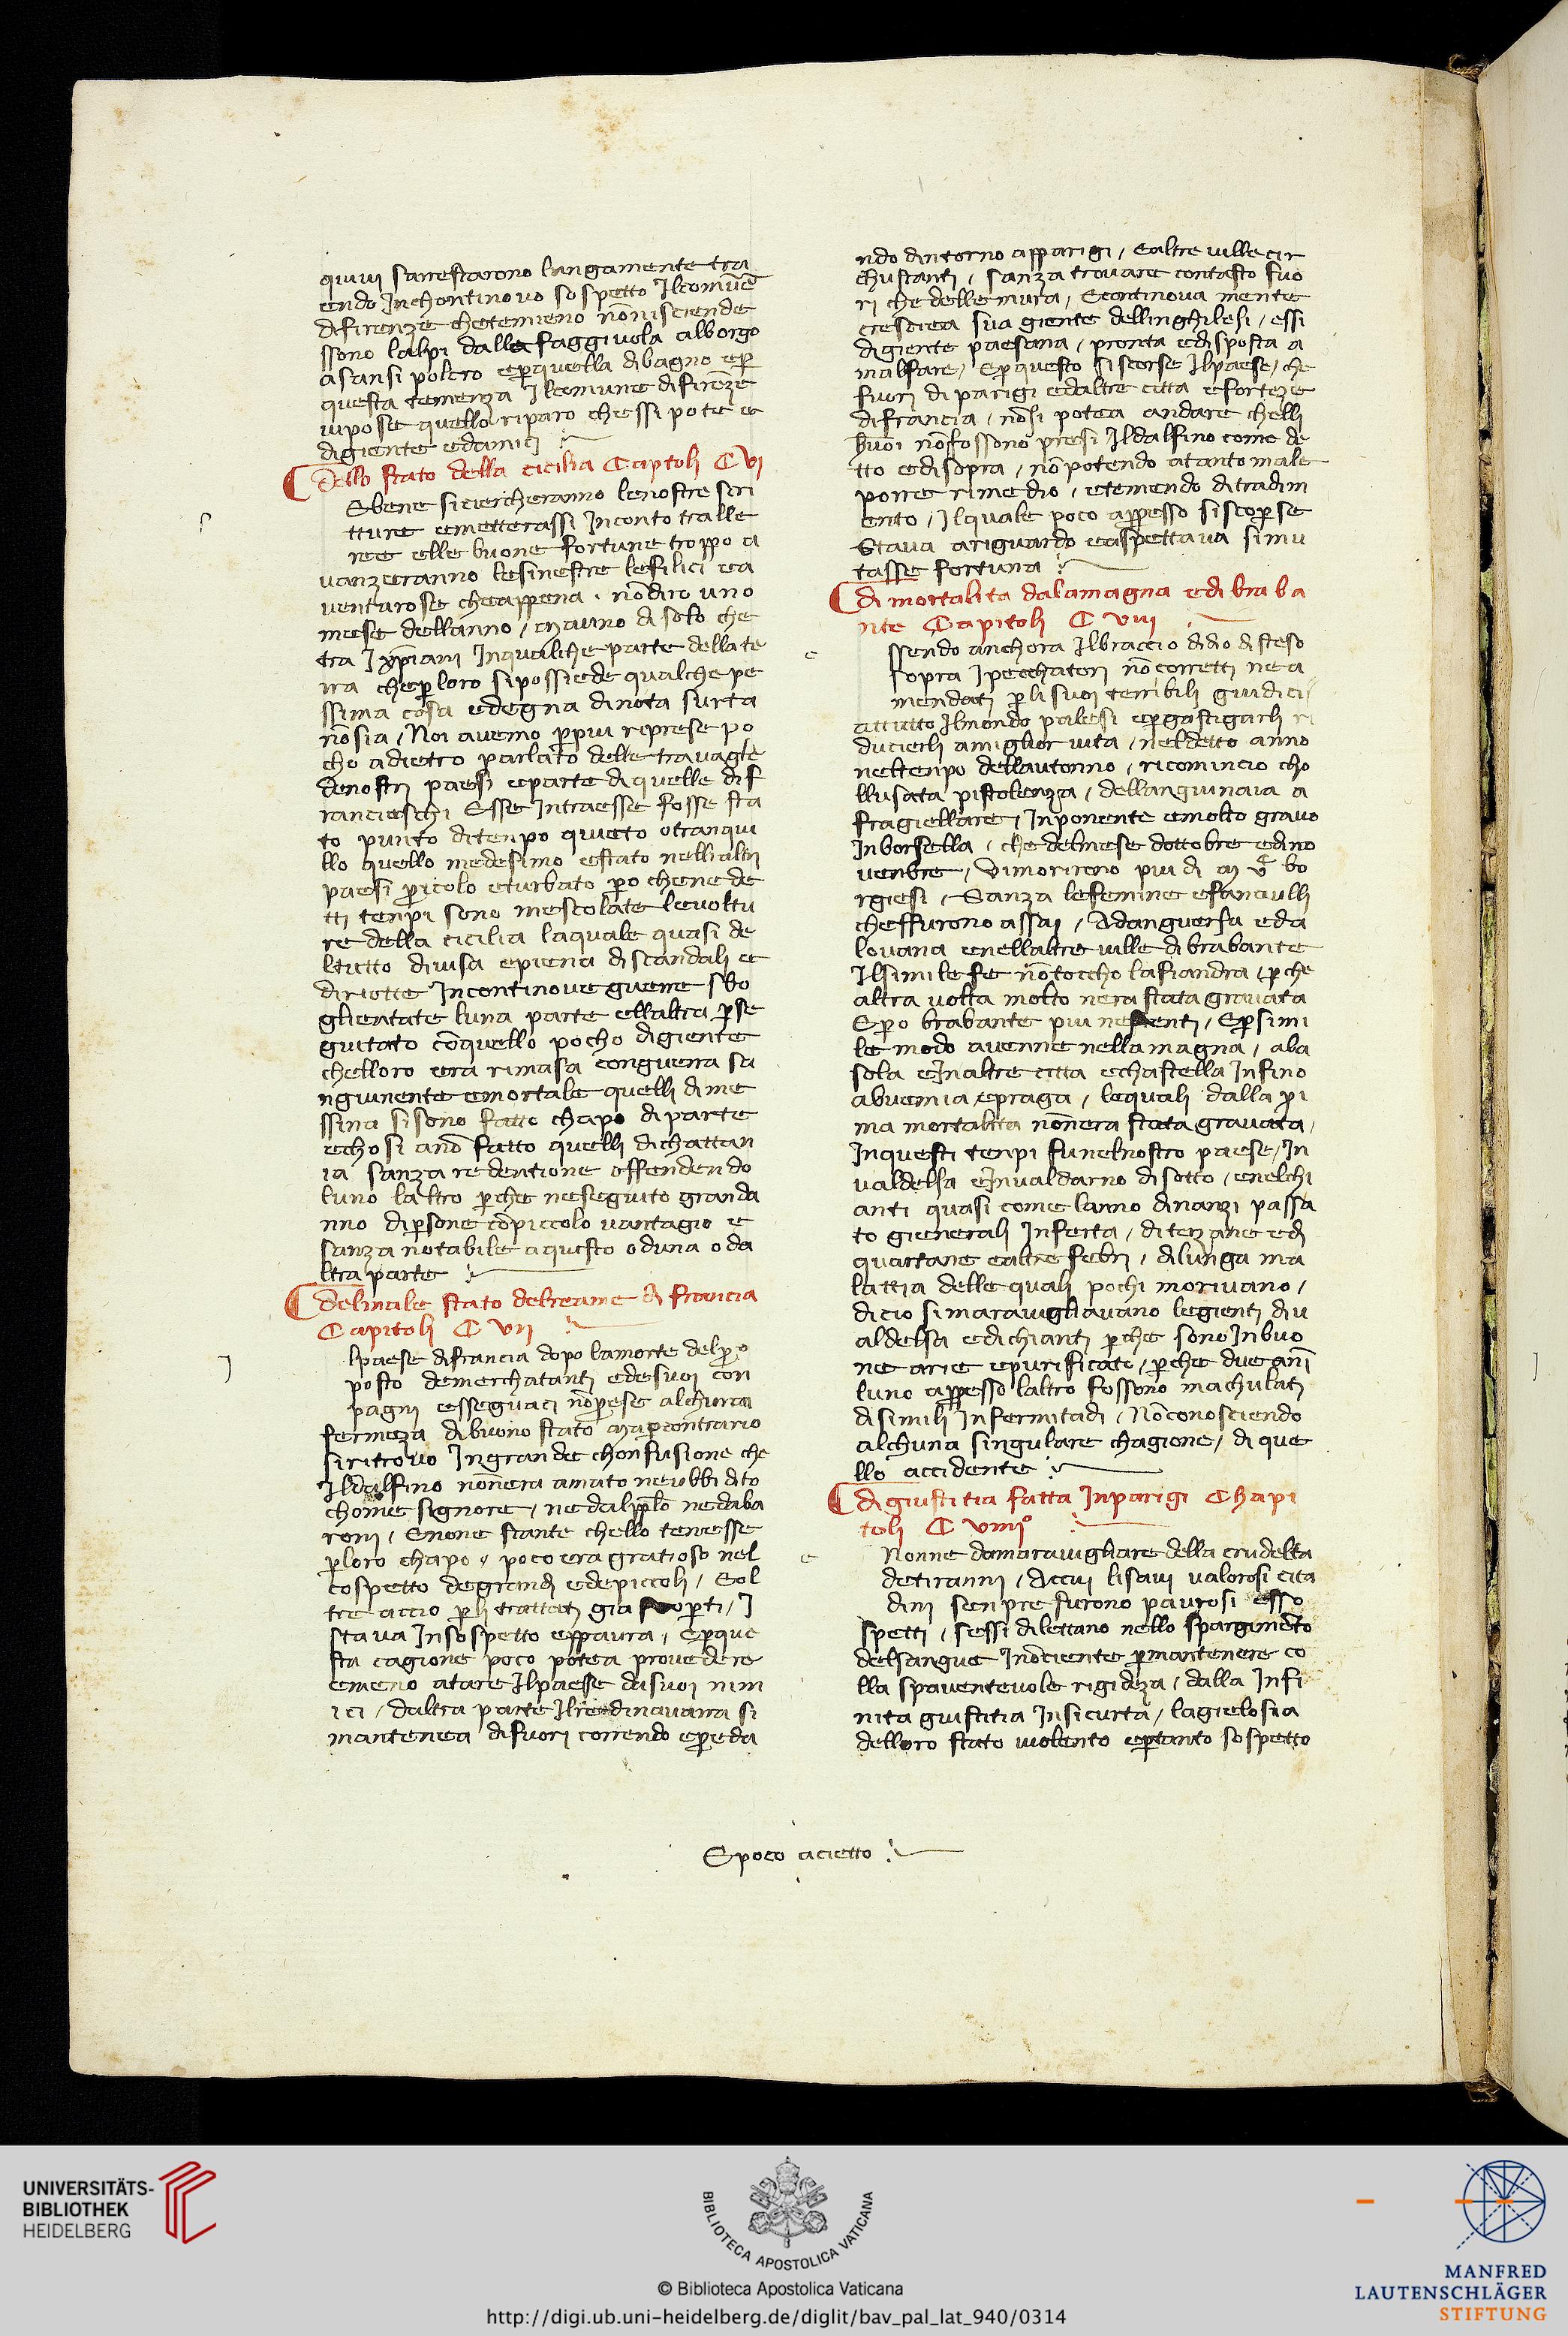 quiui sarrestarono lungamente tra
endo Inchontinovo sospetto Ilcomūe
difirenze chetemieno nōnisciende
ssono lalpi dalla faggiuola alborgo
asansi polcro eperquella dibagno eper
questa temenza Ilcomune difirēze
inpose quello riparo chessi pote e
digiente edamicj
Dello stato della cicilia Captoli C vj
Ebene siciercheranno lenostre scri
tture emetterassi Inconto tralle
ree elle buone fortune troppo a
vanzeranno lesinestre lefilici ea
venturosse cheappena . nōdiro uno
mese dellanno / mauno di solo che
tra J xp̄iani Inqualche parte della te
rra cheꝑ loro sipossiede qualche pe
ssima cosa edegna dinota surta
nōsia / Noi avemo ꝑpiu represe po
cho adietro parlato delle travaglē
denostri paesi eparte di quelle dif
rancieschi Esse Intraesse fosse sta
to punto ditenpo queto otranqui
llo quello medesimo estato nellialtri
paesi ꝑicolo eturbato ꝑo chenede
tti tenpi sono mescolate levoltu
re della cicilia laquale quasi de
ltutto divisa epiena discandali e
diriotte Incontinove guerre sbo
glientate luna parte ellaltra ꝑse
guitato cōquello pocho digiente
chelloro era rimasa conguerra sa
nguinente emortale quelli dime
ssina sisono fatto chapo di parte
echosi anō fatto quelli dichattan
ia sanza redentione offendendo
luno laltro ꝑche neseguito granda
nno diꝑsone cōpiccolo vantagio e
sanza notabile aquesto oduna oda
ltra parte
delmale stato delreame di francia
Capitoli C vii
lpaese difrancia dopo lamorte delꝓo
posto demerchatanti edesuoi con
pagni esseguaci nōpese alchuna
fermeza dibuono stato maꝑcontrario
siritrovo Ingrande chonfusione che
Ildalfino nōnera amato neubbidito
chome signore / nedalpplō nedaba
roni / Enone stante chello tenesse
ꝑloro chapo / poco era gratioso nel
cospetto degrandi edepiccoli / Eol
tre accio ꝑli trattati gia scoꝑti / J
stava Insospetto eppaura / Eꝑque
sta cagione poco potea provedere
emeno atare Ilpaese dasuoi nim
ici / daltra parte Ilredinavarra si
mantenea difuori correndo eꝑreda
ndo dintorno apparigi / Ealtre ville cir
chustanti / sanza trovare contasto fuo
ri che delle mura / Econtinova mente
crescica sua giente dellinghilesi / essi
digiente paesana / pronta edisposta a
malfare / Eꝑquesto siscorse Ilpaese / che
fuori di parigi edaltre citta efortezе
difrancia / nōsi potea andare chelli
huoī nōfossono presi Ildalfino come de
tto edisopra / nō potendo atanto male
porre rimedio / etemendo ditradim
ento / Ilquale poco appresso siscoꝑse
Stava ariguardo easpettava simu
tasse fortuna
di mortalita dalamagna edi braba
nte Capitoli C viii
e ssendo anchora Ilbraccio didio disteso
sopra Ipecchatori nō corretti nea
mendati ꝑli suoi terribili giudici /
attutto Ilmondo palesi eꝑgastigarli ri
ducierli amiglior vita / neldetto anno
neltenpo dellautonno / ricomincio cho
llusata pistolenza / dellanguinaia a
fragiellare / Inponente emolto gravo
Inborsella / che delmese dottobre edino
venbre / Vimorireno piu di m vᶜ bo
rgiesi / Sanza lefemine efanciulli
cheffurono assai / Adanguersa eda
lovana enellaltre ville dibrabante
Ilsimile fe nōtoccho lafiandra / ꝑche
altra volta molto nera stata gravata
Eꝑo brabante piu nesenti / Eꝑsimi
le modo avenne nellamagna / aba
sola eInaltre citta echastella Infino
abuemia epraga / lequali dalla pri
ma mortalita nōnera stata gravata /
Inquesti tenpi funelnostro paese / In
valdelsa eInvaldarno di sotto / enelchi
anti quasi come lanno dinanzi passa
to gienerali Inferta / di terzane edi
quartane ealtre febri / dilunga ma
lattia delle quali pochi morivano /
dicio simaravigliavano legienti div
aldelsa edichianti ꝑche sono Inbuo
ne arie epurificate / ꝑche due anī
luno appresso laltro fossono machulati
disimili Infermitadi / Nōconosciendo
alchuna singulare chagione / di que
llo accidente
di giustitia fatta Inparigi Chapi
toli C viiiiº
e Nonne damaravigliare della crudelta
detiranni / Accui lisavi valorosi cita
dini senpre furono paurosi esso
spetti / sessi dilettano nello spargimēto
delsangue Inōciente ꝑmantenere co
lla spaventevole rigideza / dalla Infi
nita giustitia Insicurta / lagielosia
delloro stato violento eꝑtanto sospetto
Epoco acietto
UNIVERSITÄTS-
BIBLIOTHEK
HEIDELBERG
BIBLIOTECA APOSTOLICA VATICANA
© Biblioteca Apostolica Vaticana
http://digi.ub.uni-heidelberg.de/diglit/bav_pal_lat_940/0314
MANFRED
LAUTENSCHLÄGER
STIFTUNG